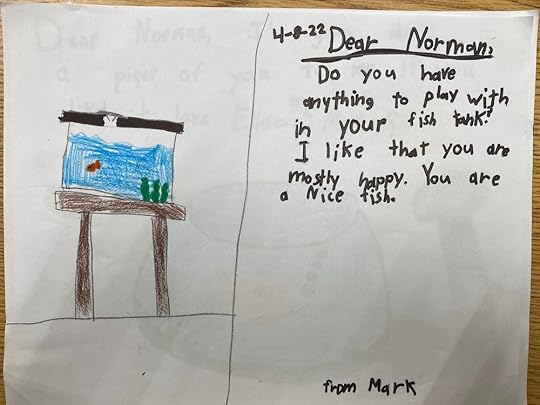 4-8-22 Dear Norman,
Do you have
anything to play with
in your fish tank?
I like that you are
mostly happy. You are
a Nice fish.
from Mark